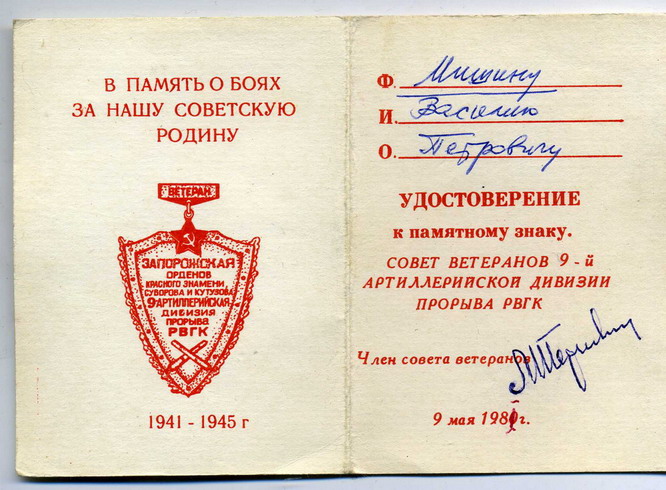 В ПАМЯТЬ О БОЯХ
ЗА НАШУ СОВЕТСКУЮ
РОДИНУ
ВЕТЕРАН
ЗАПОРОЖСКАЯ
ОРДЕНОВ
КРАСНОГО ЗНАМЕНИ,
СУВОРОВА И КУТУЗОВА
9 АРТИЛЛЕРИЙСКАЯ
ДИВИЗИЯ
ПРОРЫВА
РВГК
1941 - 1945 г
Ф. Мишину
И. Василию
О. Петровичу
УДОСТОВЕРЕНИЕ
к памятному знаку.
СОВЕТ ВЕТЕРАНОВ 9-й
АРТИЛЛЕРИЙСКОЙ ДИВИЗИИ
ПРОРЫВА РВГК
Член совета ветеранов
9 мая 1981г.